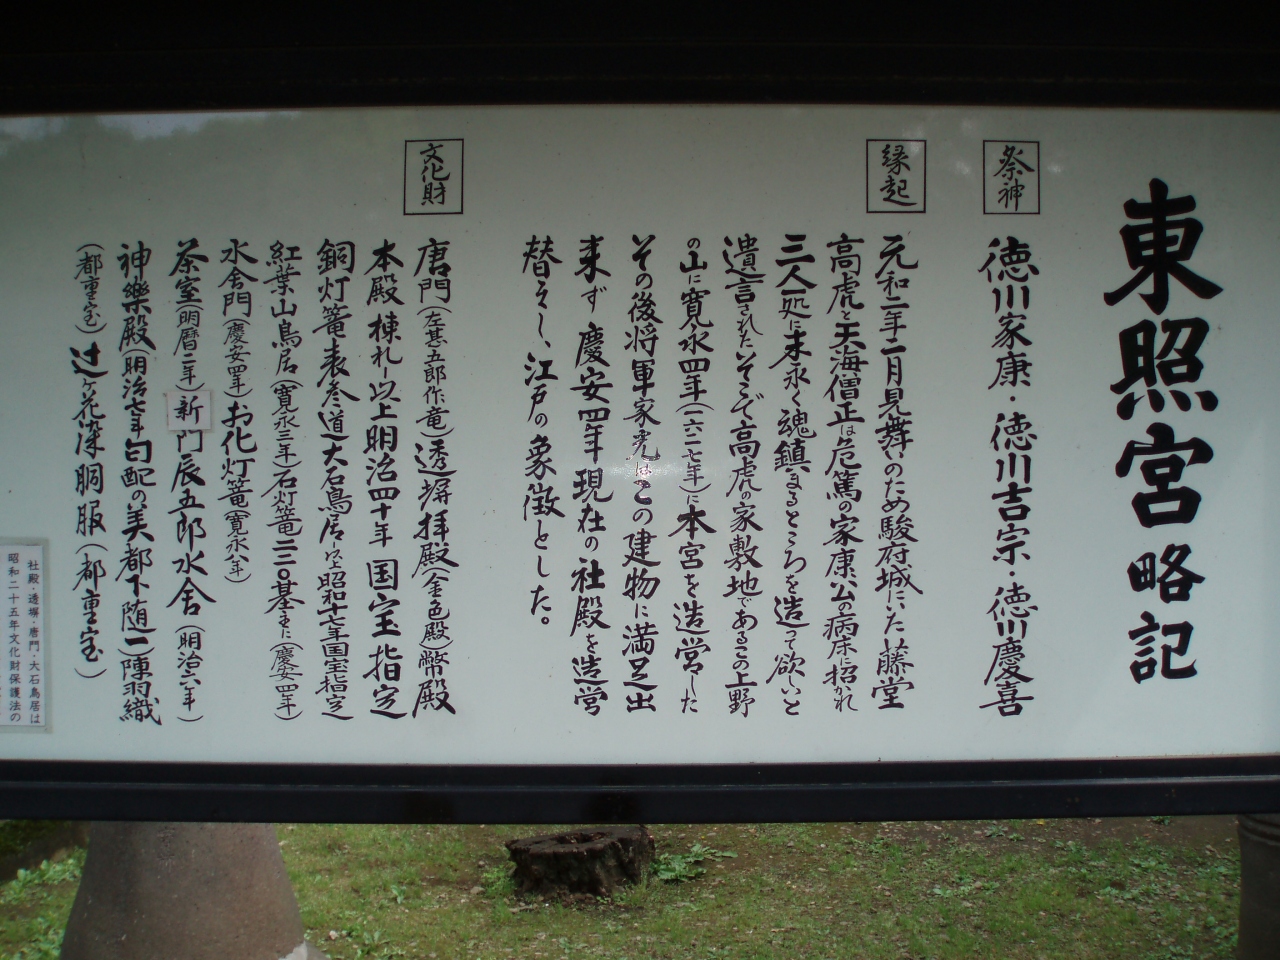 東照宮略記
祭神
徳川家康・徳川吉宗・徳川慶喜
縁起
元和二年二月見舞いのため駿府城にいた藤堂
高虎と天海僧正は危篤の家康公の病床に招かれ
三人一処に末永く魂鎮まるところを造って欲しいと
遺言されたそこで高虎の家敷地であるこの上野
の山に寛永四年(一六二七年)に本宮を造営した
その後将軍家光はこの建物に満足出
来ず慶安四年現在の社殿を造営
替えし、江戸の象徴とした。
文化財
唐門(左甚五郎作竜)透塀拝殿(金色殿)幣殿
本殿棟札以上明治四十年国宝指定
銅灯篭表参道大石鳥居以上昭和十七年国宝指定
紅葉山鳥居(寛永三年)石灯篭二二〇基主に(慶安四年)
水舎門(慶安四年)お化灯篭(寛永八年)
茶室(明暦二年)新門辰五郎水舎(明治六年)
神樂殿(明治七年勾配の美都下随一)陳羽織
(都重宝)辻ヶ花染胴服(都重宝)
社殿・透塀・唐門・大石鳥居は
昭和二十五年文化財保護法の